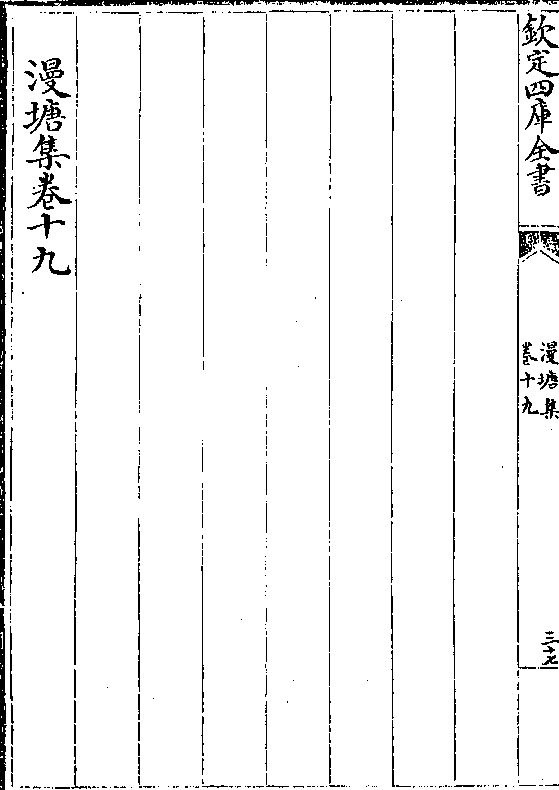 欽定四庫全書
漫塘集
卷十九
三十七
漫塘集卷十九